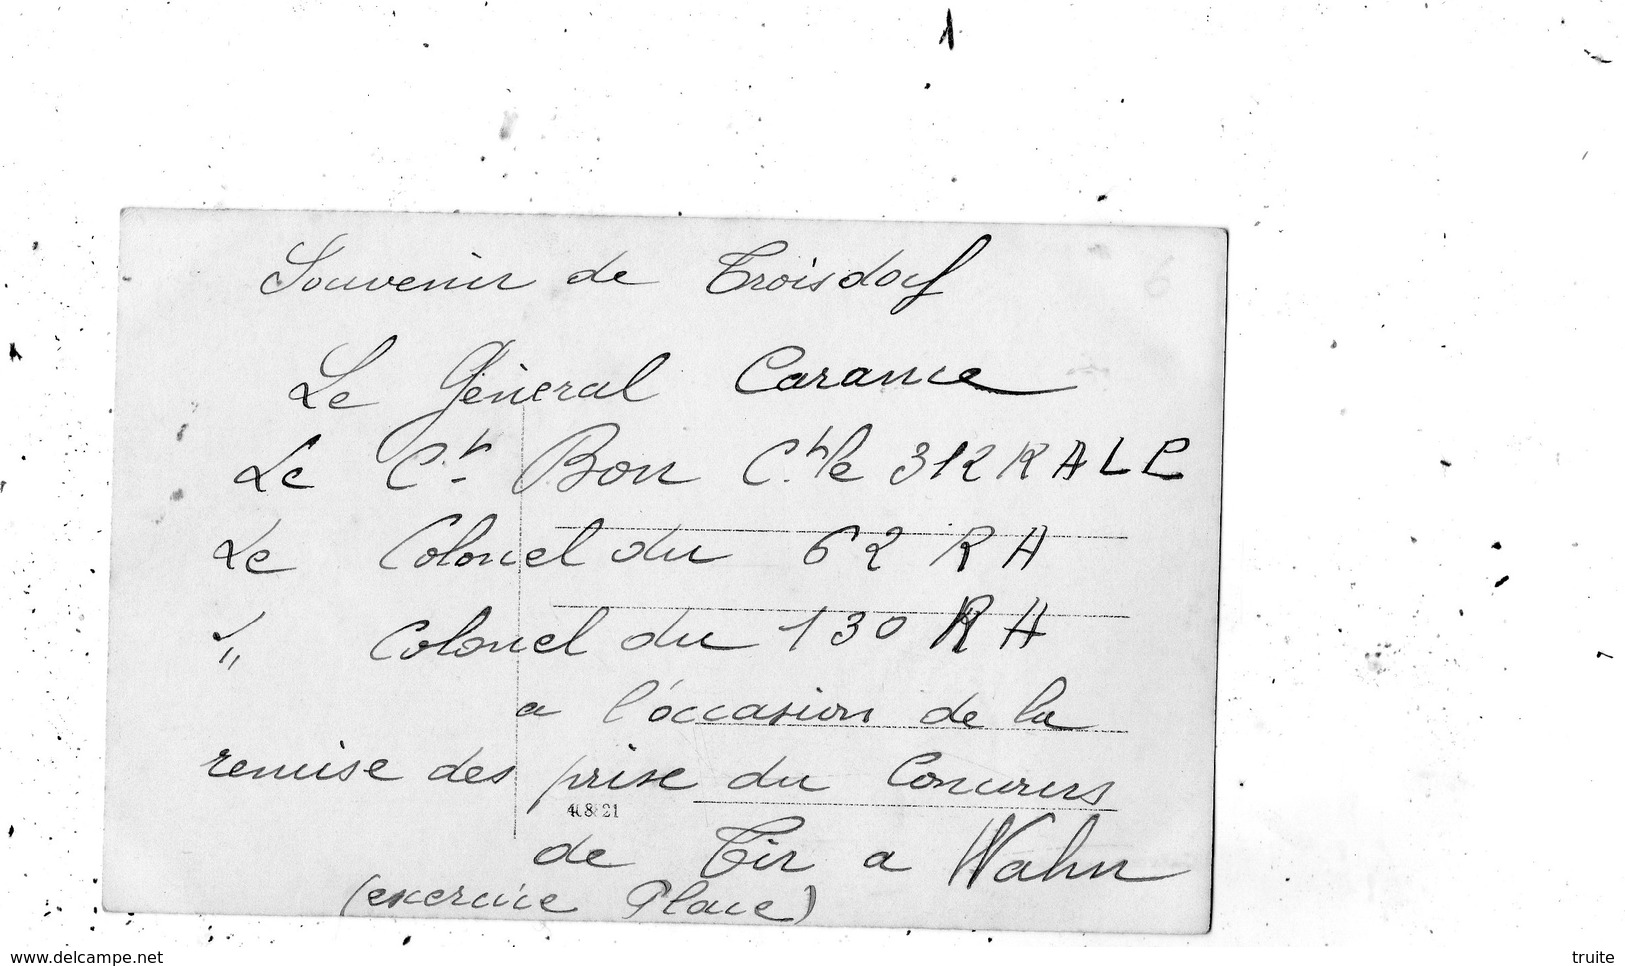 1
Souvenir de Troisdorf
Le Général Carance
Le Ct Bon Ct le 312 RALP
Le Colonel du 62 RA
" Colonel du 130 RA
a l'occasion de la
remise des prise du Concours
4.8 21
de Tir a Wahn
(exercice Place)
www.delcampe.net
truite